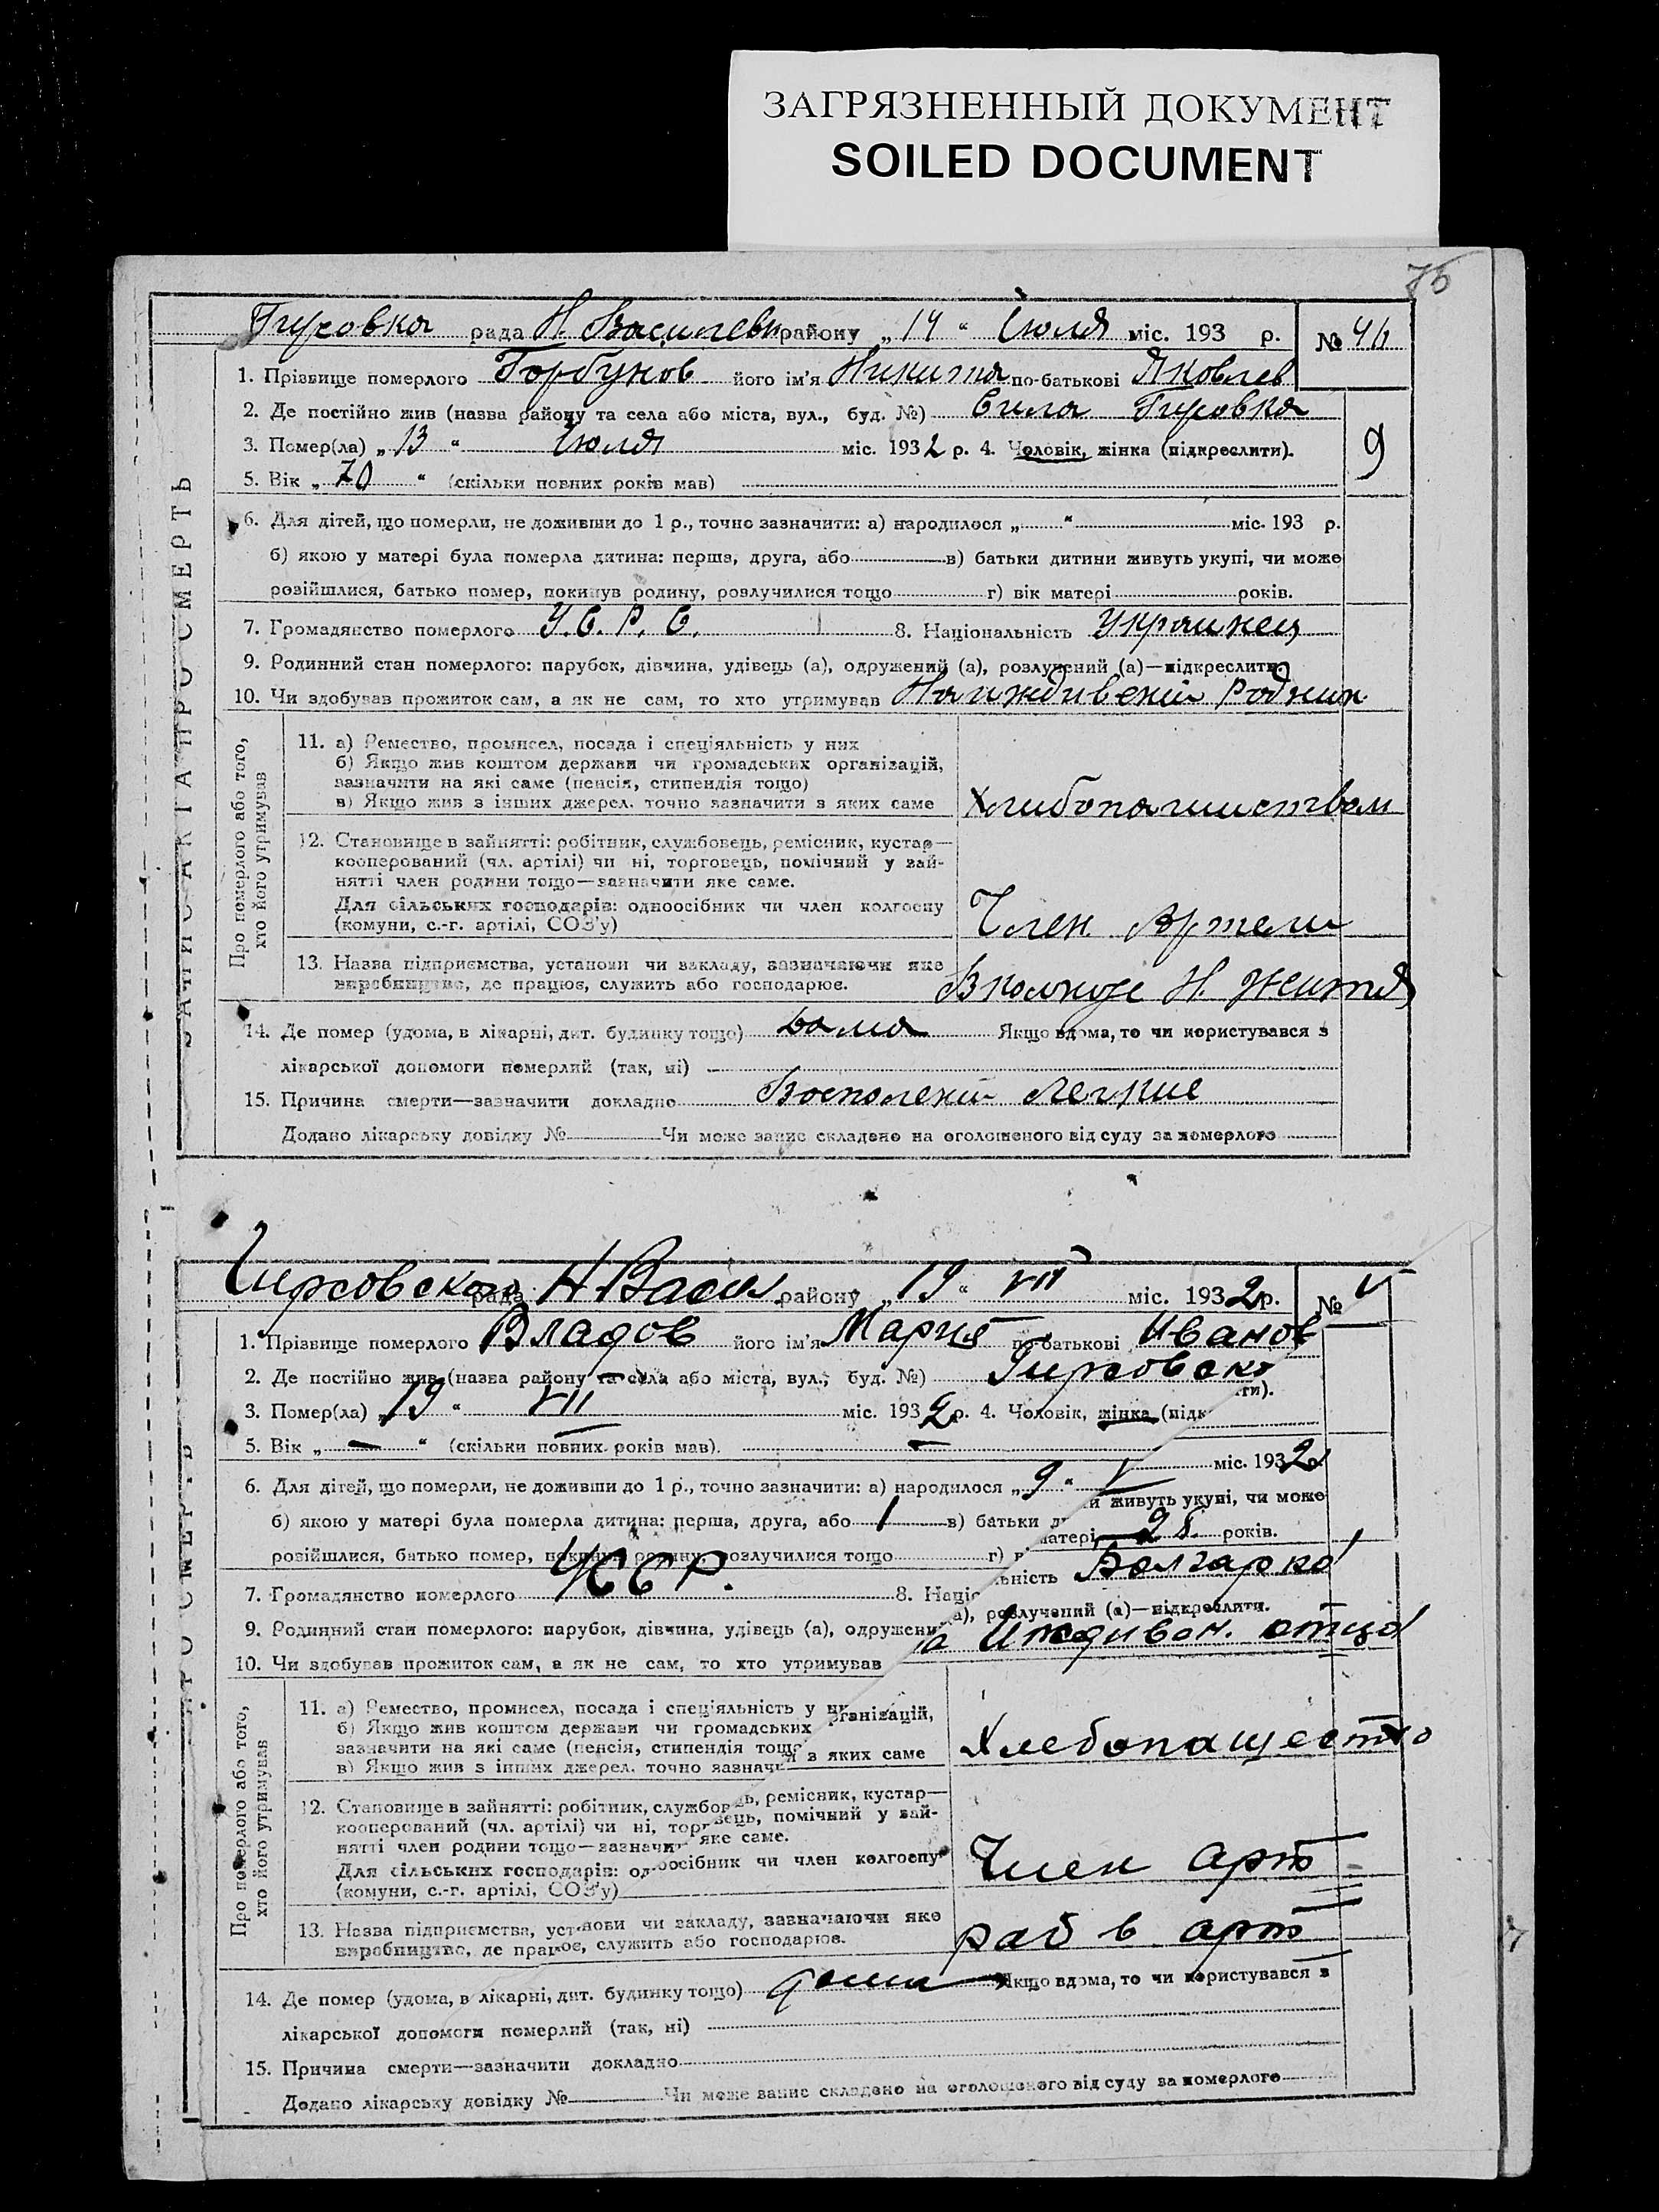 ЗАГРЯЗНЕННЫЙ ДОКУМЕНТ
SOILED DOCUMENT
75
Гирсовка рада Н. Василевк району „14“ Июля міс. 193 р. №
1. Прізвище померлого Горбунов його ім'я Никита по-батькові Яковлев
2. Де постійно жив (назва району та села або міста, вул., буд. №) Села Гирсовка
3. Помер(ла) „13“ Июля міс. 1932 р. 4. Чоловік, жінка (підкреслити).
9
5. Вік „70“ (скільки повних років мав)
6. Для дітей, що померли, не доживши до 1 р., точно зазначити: а) народилося „ “ міс. 193 р.
б) якою у матері була померла дитина: перша, друга, або в) батьки дитини живуть укупі, чи може
розійшлися, батько помер, покинув родину, розлучилися тощо г) вік матері років.
7. Громадянство померлого У.С.Р.С. 8. Національність Украинец
9. Родинний стан померлого: парубок, дівчина, удівець (а), одружений (а), розлучений (а)—підкреслити.
10. Чи здобував прожиток сам, а як не сам, то хто утримував На иждивении родних
ЗАПИС АКТА ПРО СМЕРТЬ
Про померлого або того, хто його утримував
11. а) Ремество, промисел, посада і спеціяльність у них
б) Якщо жив коштом держави чи громадських організацій,
зазначити на які саме (пенсія, стипендія тощо)
в) Якщо жив з інших джерел. точно зазначити з яких саме Хлибопашиством
12. Становище в зайнятті: робітник, службовець, ремісник, кустар—
кооперований (чл. артілі) чи ні, торговець, помічний у зай-
нятті член родини тощо—зазначити яке саме.
Для сільських господарів: одноосібник чи член колгоспу
(комуни, с.-г. артілі, СОЗ'у) Член Артели
13. Назва підприємства, установи чи закладу, зазначаючи яке
виробництво, де працює, служить або господарює. Вколхозе Н. Житя
14. Де помер (удома, в лікарні, дит. будинку тощо) Дома Якщо вдома, то чи користувався з
лікарської допомоги померлий (так, ні)
15. Причина смерти—зазначити докладно Восполении Легкие
Додано лікарську довідку № Чи може запис складено на оголошеного від суду за померлого
Гирсовского рада Н Васил району „19“ VII міс. 1932 р. №
1. Прізвище померлого Владов його ім'я Мария по-батькові Иванов
2. Де постійно жив (назва району та села або міста, вул., буд. №) Гирсовско
3. Помер(ла) „19“ VII міс. 1932 р. 4. Чоловік, жінка (підк ти).
5. Вік „—“ (скільки повних років мав). —
6. Для дітей, що померли, не доживши до 1 р., точно зазначити: а) народилося „9“ V міс. 1932
б) якою у матері була померла дитина: перша, друга, або 1 в) батьки д и живуть укупі, чи може
розійшлися, батько помер, покинув родину, розлучилися тощо г) в матері років.
7. Громадянство померлого УССР. 8. Націо льність Болгарка
9. Родинний стан померлого: парубок, дівчина, удівець (а), одружени а), розлучений (а)—підкреслити.
10. Чи здобував прожиток сам, а як не сам, то хто утримував а Иждивен. отца
ПРО СМЕРТЬ
Про померлого або того, хто його утримував
11. а) Ремество, промисел, посада і спеціяльність у ни
б) Якщо жив коштом держави чи громадських рганізацій,
зазначити на які саме (пенсія, стипендія тощо
в) Якщо жив з інших джерел. точно зазначи з яких саме Хлебопащество
12. Становище в зайнятті: робітник, службовець, ремісник, кустар—
кооперований (чл. артілі) чи ні, торговець, помічний у зай-
нятті член родини тощо—зазначи яке саме.
Для сільських господарів: одноосібник чи член колгоспу
(комуни, с.-г. артілі, СОЗ'у) Член арт
13. Назва підприємства, установи чи закладу, зазначаючи яке
виробництво, де працює, служить або господарює. раб в арт
14. Де помер (удома, в лікарні, дит. будинку тощо) дома Якщо вдома, то чи користувався з
лікарської допомоги померлий (так, ні)
15. Причина смерти—зазначити докладно
Додано лікарську довідку № Чи може запис складено на оголошеного від суду за померлого